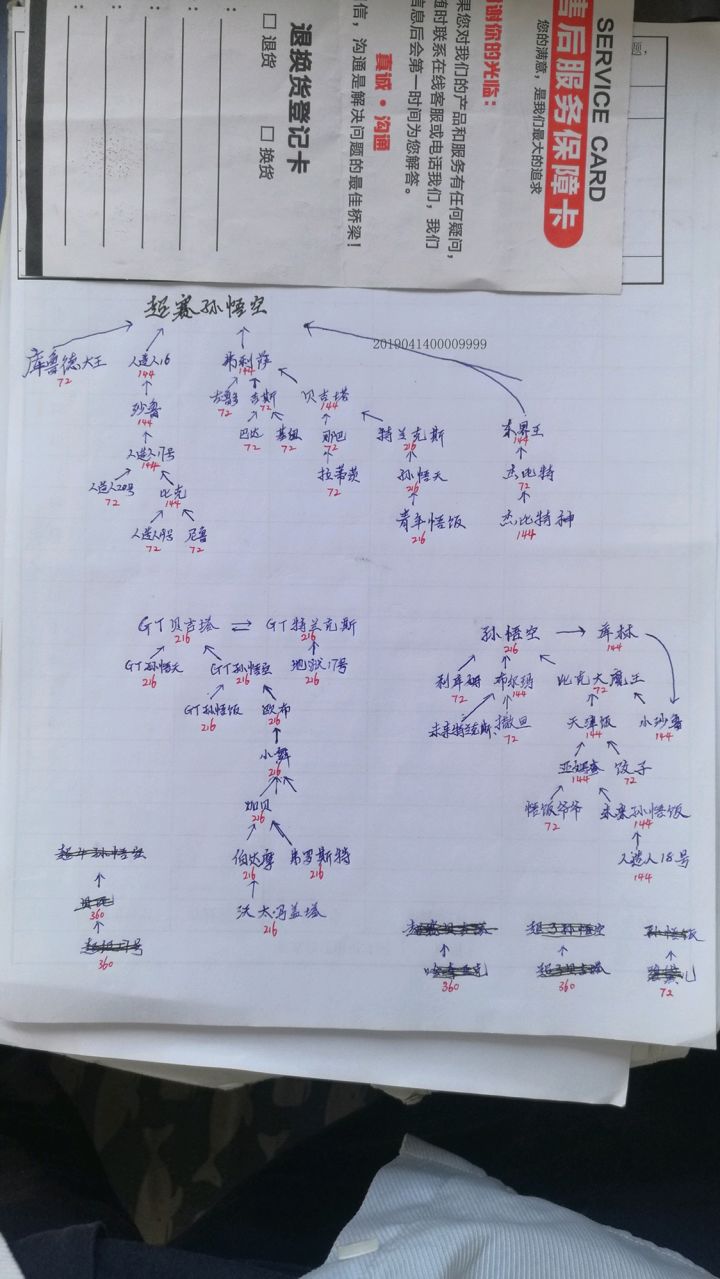 SERVICE CARD
售后服务保障卡
您的满意，是我们最大的追求
谢谢你的光临：
果您对我们的产品和服务有任何疑问，
随时联系在线客服或电话我们，我们
信息后会第一时间为您解答。
真诚·沟通
信，沟通是解决问题的最佳桥梁！
退换货登记卡
□ 退货 □ 换货
超赛孙悟空
2019041400009999
库鲁德大王 人造人16 弗利萨
72 144 144
沙鲁 古鲁多 吉斯 贝吉塔
144 72 72 144
巴达 基纽 那巴 特兰克斯 东界王
72 72 72 216 144
人造人17号 拉蒂兹 孙悟天 杰比特
144 72 216 72
人造人20号 比克 青年悟饭 杰比特神
72 144 216 144
人造人19号 尼鲁
72 72
GT贝吉塔 ⇌ GT特兰克斯 孙悟空 → 库林
216 216 216 144
GT孙悟天 GT孙悟空 地狱17号 利库姆 布尔玛 比克大魔王
216 216 216 72 144 72
GT孙悟饭 欧布 未来特兰克斯 撒旦 天津饭 小沙鲁
216 216 72 144 144
小舞 饺子
216 144 72
加贝 悟饭爷爷 未来孙悟饭
216 72 144
伯达摩 弗罗斯特 人造人18号
216 216 144
沃太玛盖塔
216
超4孙悟空
360
超级17号
360
超3孙悟空 孙悟饭
360 超3贝吉塔
360 72